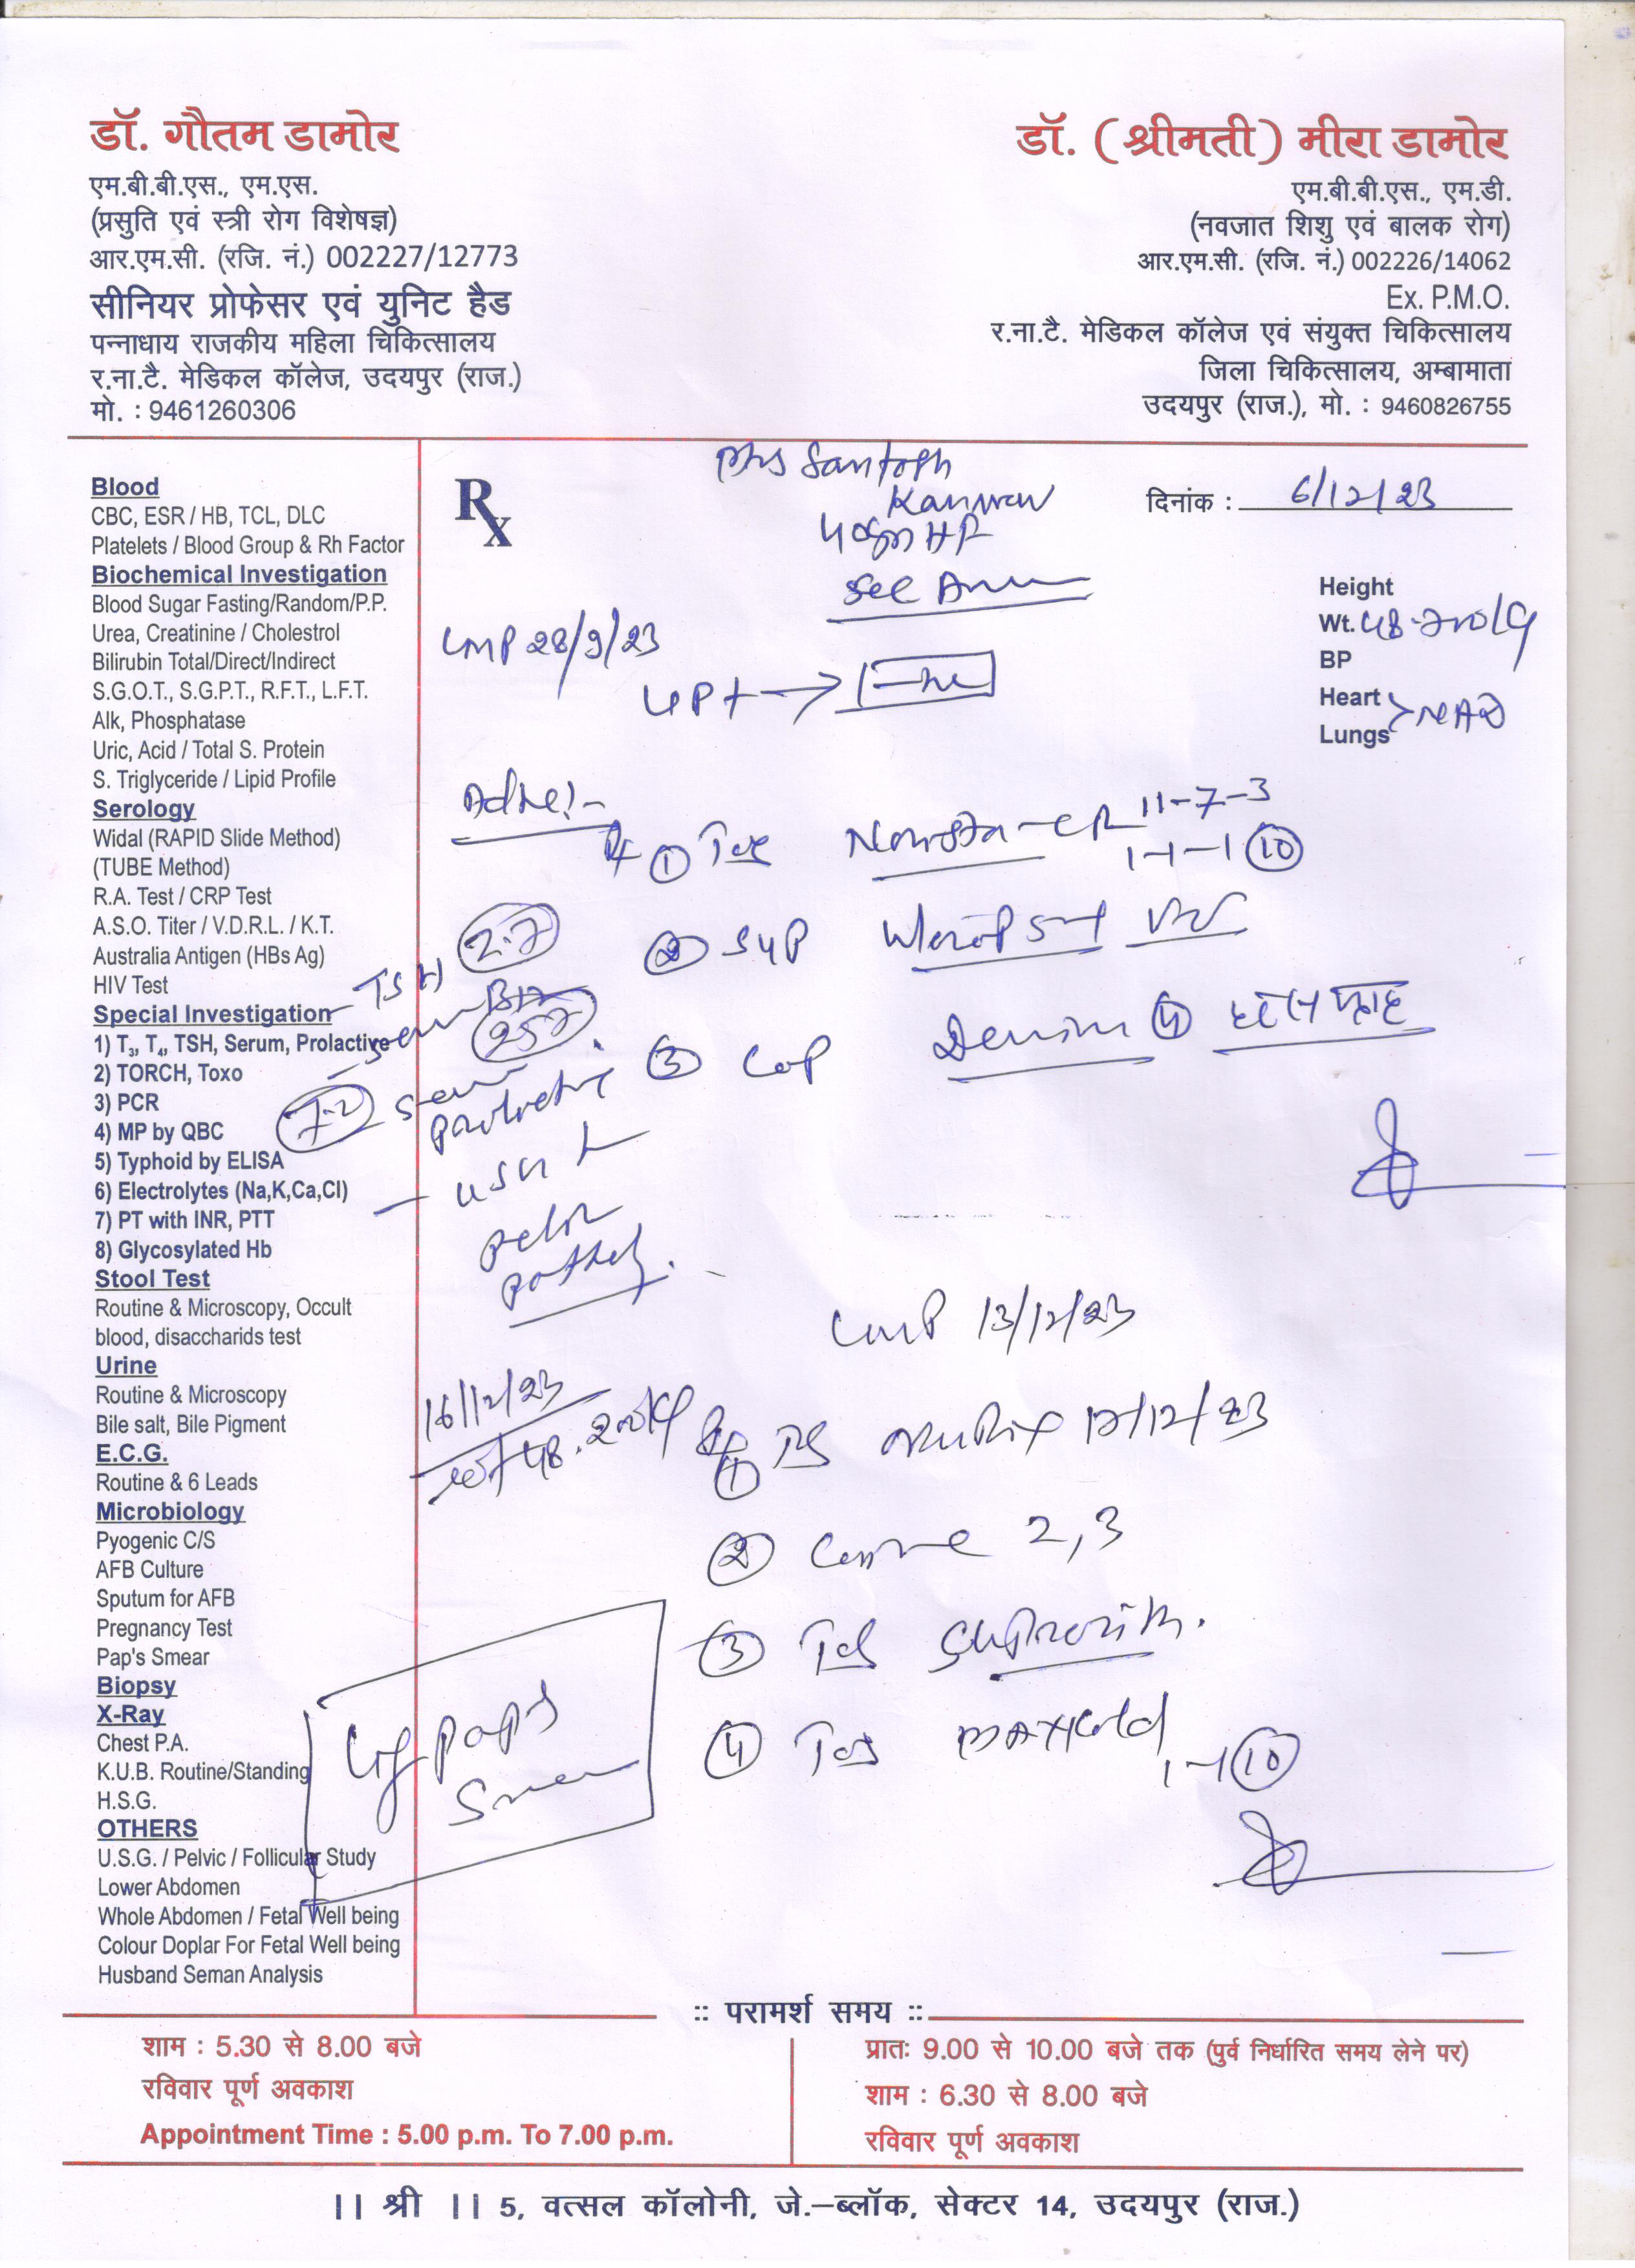 डॉ. गौतम डामोर
एम.बी.बी.एस., एम.एस.
(प्रसुति एवं स्त्री रोग विशेषज्ञ)
आर.एम.सी. (रजि. नं.) 002227/12773
सीनियर प्रोफेसर एवं युनिट हैड
पन्नाधाय राजकीय महिला चिकित्सालय
र.ना.टै. मेडिकल कॉलेज, उदयपुर (राज.)
मो. : 9461260306
डॉ. (श्रीमती) मीरा डामोर
एम.बी.बी.एस., एम.डी.
(नवजात शिशु एवं बालक रोग)
आर.एम.सी. (रजि. नं.) 002226/14062
Ex. P.M.O.
र.ना.टै. मेडिकल कॉलेज एवं संयुक्त चिकित्सालय
जिला चिकित्सालय, अम्बामाता
उदयपुर (राज.), मो. : 9460826755
Blood
CBC, ESR / HB, TCL, DLC
Platelets / Blood Group & Rh Factor
Biochemical Investigation
Blood Sugar Fasting/Random/P.P.
Urea, Creatinine / Cholestrol
Bilirubin Total/Direct/Indirect
S.G.O.T., S.G.P.T., R.F.T., L.F.T.
Alk, Phosphatase
Uric, Acid / Total S. Protein
S. Triglyceride / Lipid Profile
Serology
Widal (RAPID Slide Method)
(TUBE Method)
R.A. Test / CRP Test
A.S.O. Titer / V.D.R.L. / K.T.
Australia Antigen (HBs Ag)
HIV Test
Special Investigation
1) T3, T4, TSH, Serum, Prolactive
2) TORCH, Toxo
3) PCR
4) MP by QBC
5) Typhoid by ELISA
6) Electrolytes (Na,K,Ca,Cl)
7) PT with INR, PTT
8) Glycosylated Hb
Stool Test
Routine & Microscopy, Occult
blood, disaccharids test
Urine
Routine & Microscopy
Bile salt, Bile Pigment
E.C.G.
Routine & 6 Leads
Microbiology
Pyogenic C/S
AFB Culture
Sputum for AFB
Pregnancy Test
Pap's Smear
Biopsy
X-Ray
Chest P.A.
K.U.B. Routine/Standing
H.S.G.
OTHERS
U.S.G. / Pelvic / Follicular Study
Lower Abdomen
Whole Abdomen / Fetal Well being
Colour Doplar For Fetal Well being
Husband Seman Analysis
Rx
Mrs Santosh
Kanwar
दिनांक : 6/12/23
Height
Wt. 48.200
BP
Heart
Lungs > NAD
LMP 28/9/23
UPT → -ve
Adve:-
① Tab CR 11-7-3
1-1-1 ⑩
② Syp
③ Cap
- TSH 2.7
B12
257
USG
pelvic
LMP 13/12/23
16/12/23
wt 48.200
① 12/12/23
② 2,3
③ Tab
④ Tab MAXGold
1-1 ⑩
Pap's
Smear
:: परामर्श समय ::
शाम : 5.30 से 8.00 बजे
रविवार पूर्ण अवकाश
Appointment Time : 5.00 p.m. To 7.00 p.m.
प्रातः 9.00 से 10.00 बजे तक (पुर्व निर्धारित समय लेने पर)
शाम : 6.30 से 8.00 बजे
रविवार पूर्ण अवकाश
|| श्री || 5, वत्सल कॉलोनी, जे.–ब्लॉक, सेक्टर 14, उदयपुर (राज.)